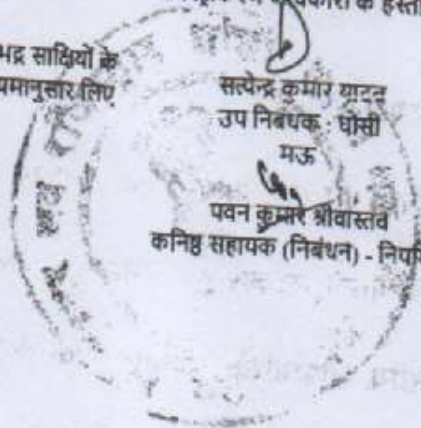 के हस्ता
भद्र साक्षियों के
यमानुसार लिए
सत्येन्द्र कुमार यादव
उप निबंधक : घोसी
मऊ
पवन कुमार श्रीवास्तव
कनिष्ठ सहायक (निबंधन) - निय